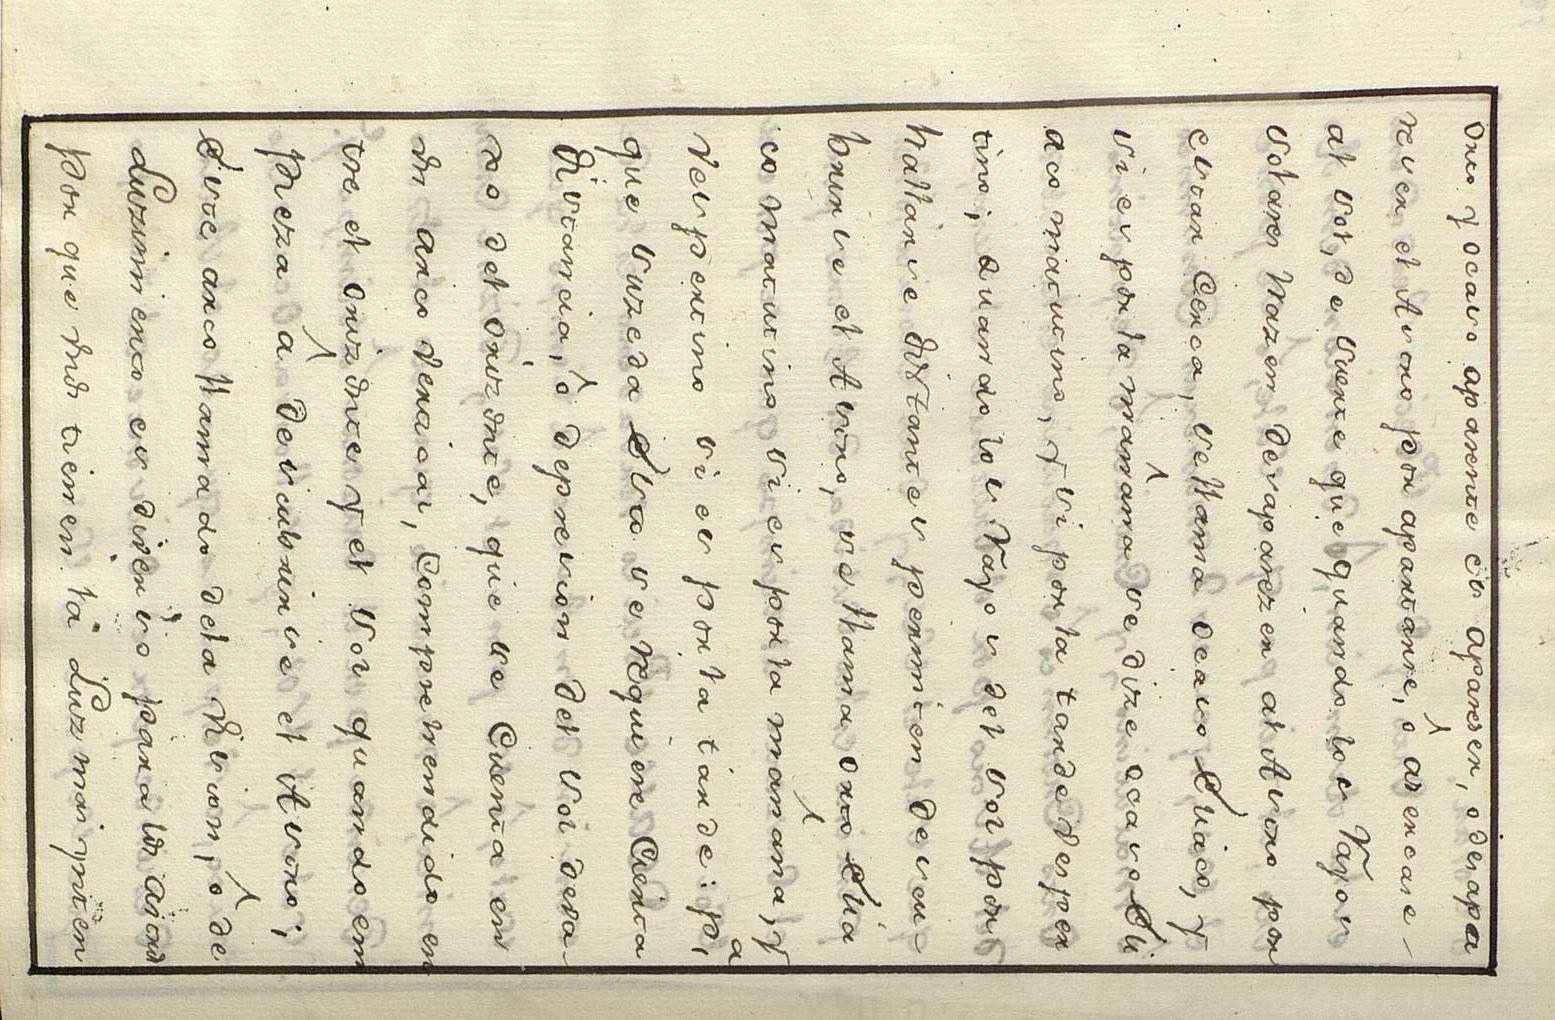 Orto y ocaso aparente es aparezer, o desapa
rezer el Astro por apartarse, ô azercarse
al sol, de suerte que quando los Rayos
solares hazen desaparezer al Astro por
estar Cerca, se llama ocaso Eliaco, y
si es por la mañana se dize ocaso Eli
aco matutino, y si por la tarde vesper
tino; quando los Rayos del sol por
hallarse distantes permiten descu-
brirse el Astro, se llama orto Elia
co matutino si es por la mañana, y
vespertino si es por la tarde: pa,
que suzeda Esto se requiere Cierta
distancia, ô depresion del sol deva-
xo del orizonte, que se Cuenta en
un arco vertical, Comprehendido en
tre el orizonte y el sol quando em
pieza â descubrirse el Astro;
Este arco llamado dela vision, ô de
Luzimiento es diverso para los astros
por que unos tienen la Luz mas ynten